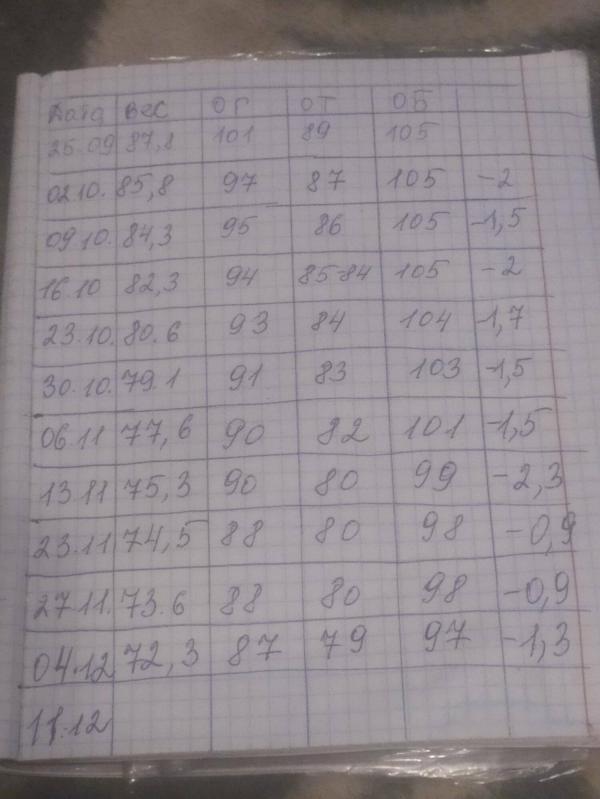 Дата Вес ОГ ОТ ОБ
25.09 87,8 101 89 105
02.10. 85,8 97 87 105 -2
09.10. 84,3 95 86 105 -1,5
16.10 82,3 94 85-84 105 -2
23.10. 80.6 93 84 104 -1,7
30.10. 79.1 91 83 103 -1,5
06.11 77,6 90 82 101 -1,5
13.11 75,3 90 80 99 -2,3
23.11 74,5 88 80 98 -0,9
27.11. 73.6 88 80 98 -0,9
04.12 72,3 87 79 97 -1,3
11.12